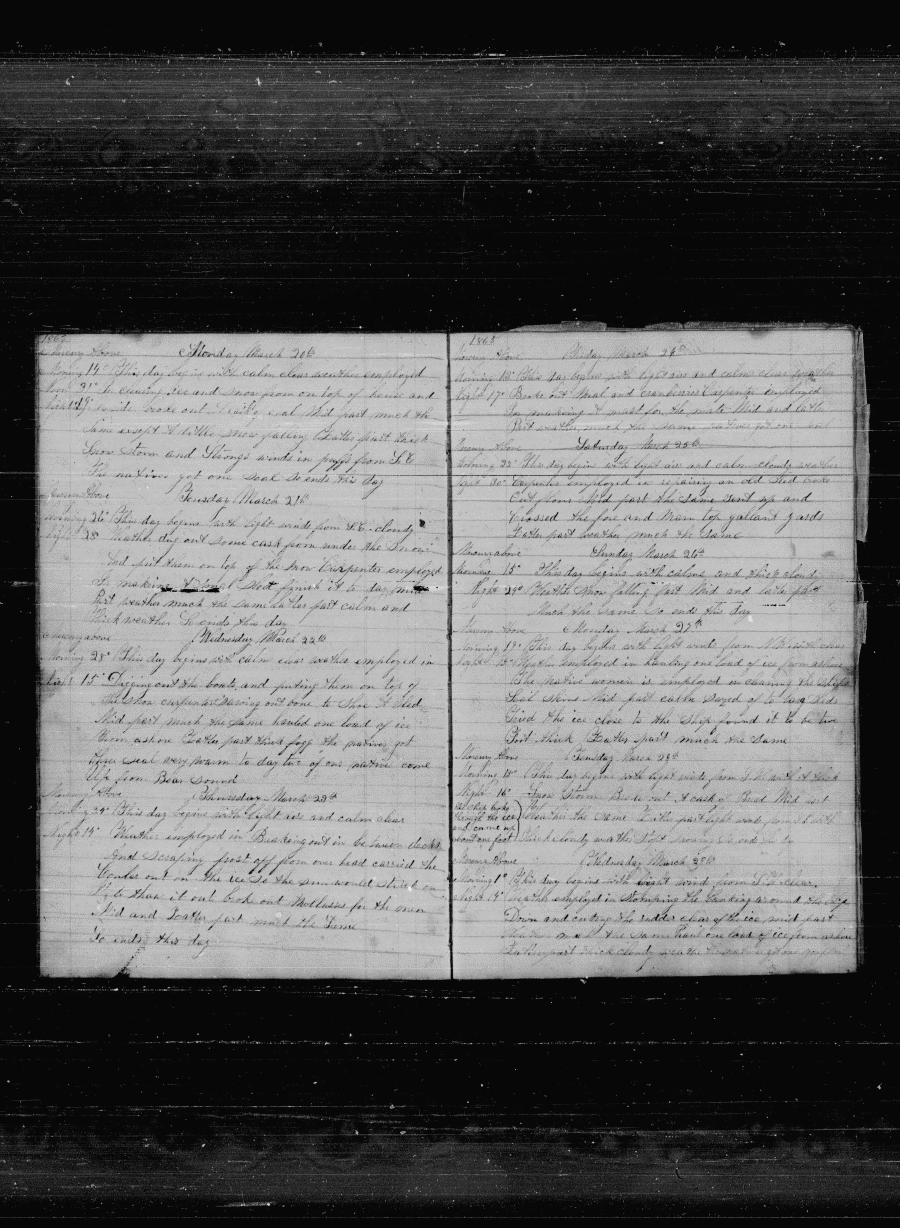 186
Mercury Above Monday March 20th
Morning 14° This day begins with calm clear weather employed
Noon 21° to clearing ice and snow from on top of house and
Night 19° broke out coal Mid part much the
Same except A little snow falling Latter part thick
Snow Storm and Strong winds in puffs from S.E
The natives got one seal So ends this day
Mercury Above Tuesday March 21th
Morning 26° This day begins with light winds from S.E. cloudy
Night 28° Weather dug out some cask from under the snow
And put them on top of the snow Carpenter employed
In making A Sled finish it to day
Part weather much the same Latter part calm and
thick weather So ends this day
Mercury above Wednesday March 22th
Morning 28° This day begins with calm clear weather employed in
Night 15° Digging out the boats and putting them on top of
the snow carpenter having out bone to Shoe A Sled
Mid part much the same hauled one load of ice
from ashore Latter part thick fogg the natives got
seal very warm to day two of our native come
Up from Bear Sound
Mercury Above Thursday March 23th
Morning 24° This day begins with light airs and calm clear
Night 14° Weather employed in Breaking out in between decks
And scraping frost off from over head carried the
out on the ice So the sun would strick on
it to thaw it out broke out Mollasses for the men
Mid and Latter part much the Seme
So ends this day
1865
Mercury Above Friday March 24th
Morning 18° This day begins with light airs and calms clear weather
Night 17° Broke out Meal and Cranberries Carpenter employed
In making A mast for the mate Mid and latter
Part weather much the same natives got one
Mercury Above Saturday March 25th
Morning 22° This day begin with light airs and calm cloudy weather
Night 20° Carpenter employed in repairing an old Sled
Mid part the same Sent up and
Crossed the fore and main top gallant yards
Latter part weather much the same
Mercury above Sunday March 26th
Morning 15° This day begins with calms and thick cloudy
Night 24° Weather snow falling Last Mid and latter part
Much the same So ends this day
Mercury Above Monday March 27th
Morning 19° This day begins with light winds from N.W. with clear
Night 15° Weather Employed in hauling one load of ice from ashore
The native women is employed in cleaning the ships
Seal Skins Mid part calm
Tried the ice close to the Ship found it to be five
Foot thick Latter part much the same
Mercury Above Tuesday March 28th
Morning 15° This day begins with light winds from S.W. with A thick
Night 16° Snow Storm Broke out A cask of Bread Mid part
the ship broke through the ice and came up about one foot
Weather the same Latter part light winds from S.E with
thick cloudy weather
Mercury Above Wednesday March 29th
Morning 1° This day begins with light wind from S.W. clear
Night 19° Weather employed in Stomping the banking around the ship
Down and cutting the rudder clear of the ice mid part
Weather much the same Haul one load of ice from ashore
Latter part thick cloudy weather